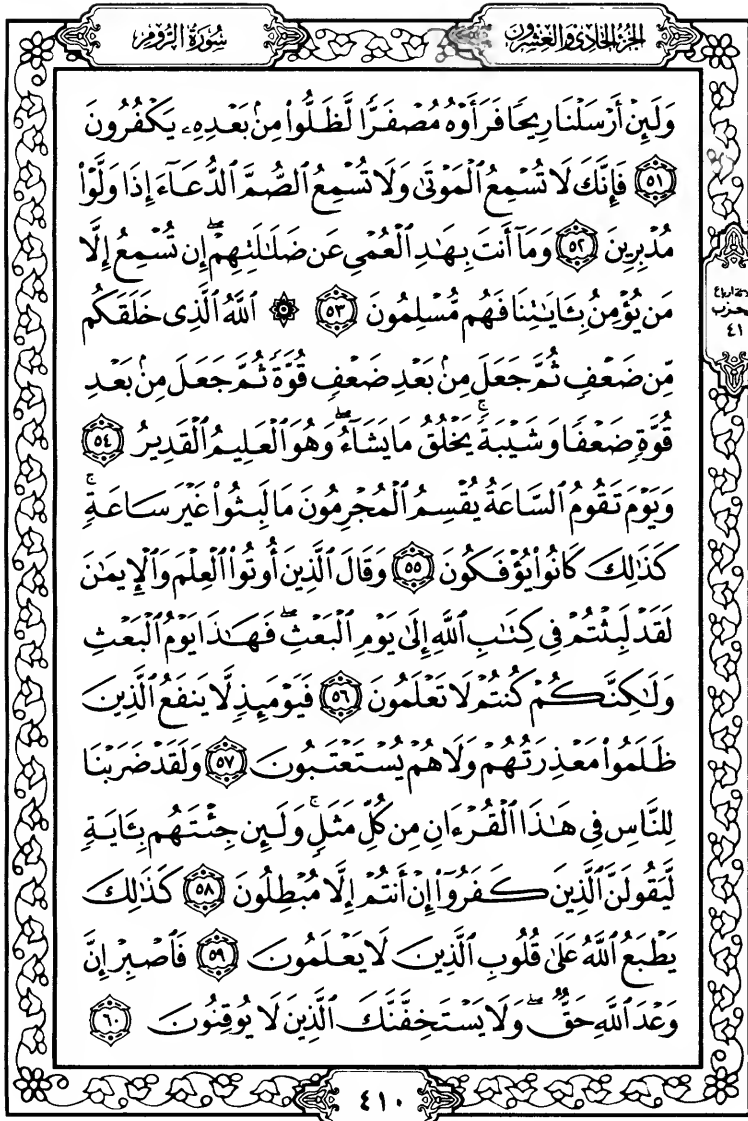 سُورَةُ الرُّومِ
الجُزْءُ الحَادِي وَالعِشْرُونَ
وَلَئِنْ أَرْسَلْنَا رِيحًا فَرَأَوْهُ مُصْفَرًّا لَّظَلُّوا۟ مِنۢ بَعْدِهِۦ يَكْفُرُونَ
﴿٥١﴾ فَإِنَّكَ لَا تُسْمِعُ ٱلْمَوْتَىٰ وَلَا تُسْمِعُ ٱلصُّمَّ ٱلدُّعَآءَ إِذَا وَلَّوْا۟
مُدْبِرِينَ ﴿٥٢﴾ وَمَآ أَنتَ بِهَٰدِ ٱلْعُمْىِ عَن ضَلَٰلَتِهِمْ ۖ إِن تُسْمِعُ إِلَّا
مَن يُؤْمِنُ بِـَٔايَٰتِنَا فَهُم مُّسْلِمُونَ ﴿٥٣﴾ ۞ ٱللَّهُ ٱلَّذِى خَلَقَكُم
مِّن ضَعْفٍ ثُمَّ جَعَلَ مِنۢ بَعْدِ ضَعْفٍ قُوَّةً ثُمَّ جَعَلَ مِنۢ بَعْدِ
قُوَّةٍ ضَعْفًا وَشَيْبَةً ۚ يَخْلُقُ مَا يَشَآءُ ۖ وَهُوَ ٱلْعَلِيمُ ٱلْقَدِيرُ ﴿٥٤﴾
وَيَوْمَ تَقُومُ ٱلسَّاعَةُ يُقْسِمُ ٱلْمُجْرِمُونَ مَا لَبِثُوا۟ غَيْرَ سَاعَةٍ ۚ
كَذَٰلِكَ كَانُوا۟ يُؤْفَكُونَ ﴿٥٥﴾ وَقَالَ ٱلَّذِينَ أُوتُوا۟ ٱلْعِلْمَ وَٱلْإِيمَٰنَ
لَقَدْ لَبِثْتُمْ فِى كِتَٰبِ ٱللَّهِ إِلَىٰ يَوْمِ ٱلْبَعْثِ ۖ فَهَٰذَا يَوْمُ ٱلْبَعْثِ
وَلَٰكِنَّكُمْ كُنتُمْ لَا تَعْلَمُونَ ﴿٥٦﴾ فَيَوْمَئِذٍ لَّا يَنفَعُ ٱلَّذِينَ
ظَلَمُوا۟ مَعْذِرَتُهُمْ وَلَا هُمْ يُسْتَعْتَبُونَ ﴿٥٧﴾ وَلَقَدْ ضَرَبْنَا
لِلنَّاسِ فِى هَٰذَا ٱلْقُرْءَانِ مِن كُلِّ مَثَلٍ ۚ وَلَئِن جِئْتَهُم بِـَٔايَةٍ
لَّيَقُولَنَّ ٱلَّذِينَ كَفَرُوٓا۟ إِنْ أَنتُمْ إِلَّا مُبْطِلُونَ ﴿٥٨﴾ كَذَٰلِكَ
يَطْبَعُ ٱللَّهُ عَلَىٰ قُلُوبِ ٱلَّذِينَ لَا يَعْلَمُونَ ﴿٥٩﴾ فَٱصْبِرْ إِنَّ
وَعْدَ ٱللَّهِ حَقٌّ ۖ وَلَا يَسْتَخِفَّنَّكَ ٱلَّذِينَ لَا يُوقِنُونَ ﴿٦٠﴾
حزب
٤١
٤١٠